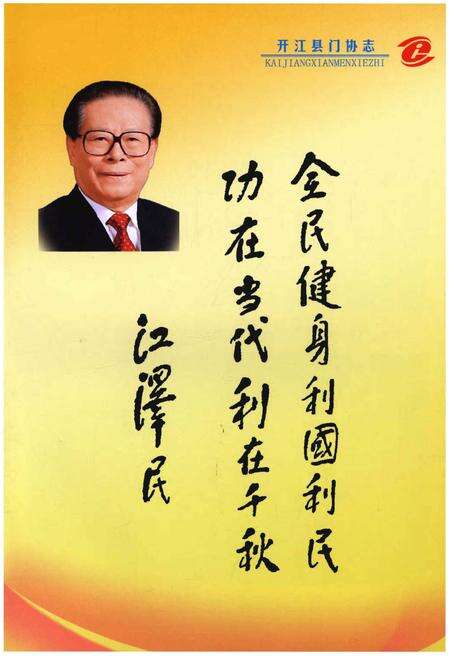 开江县门协志
KAIJIANGXIANMENXIEZHI
全民健身利國利民
功在当代利在千秋
江澤民